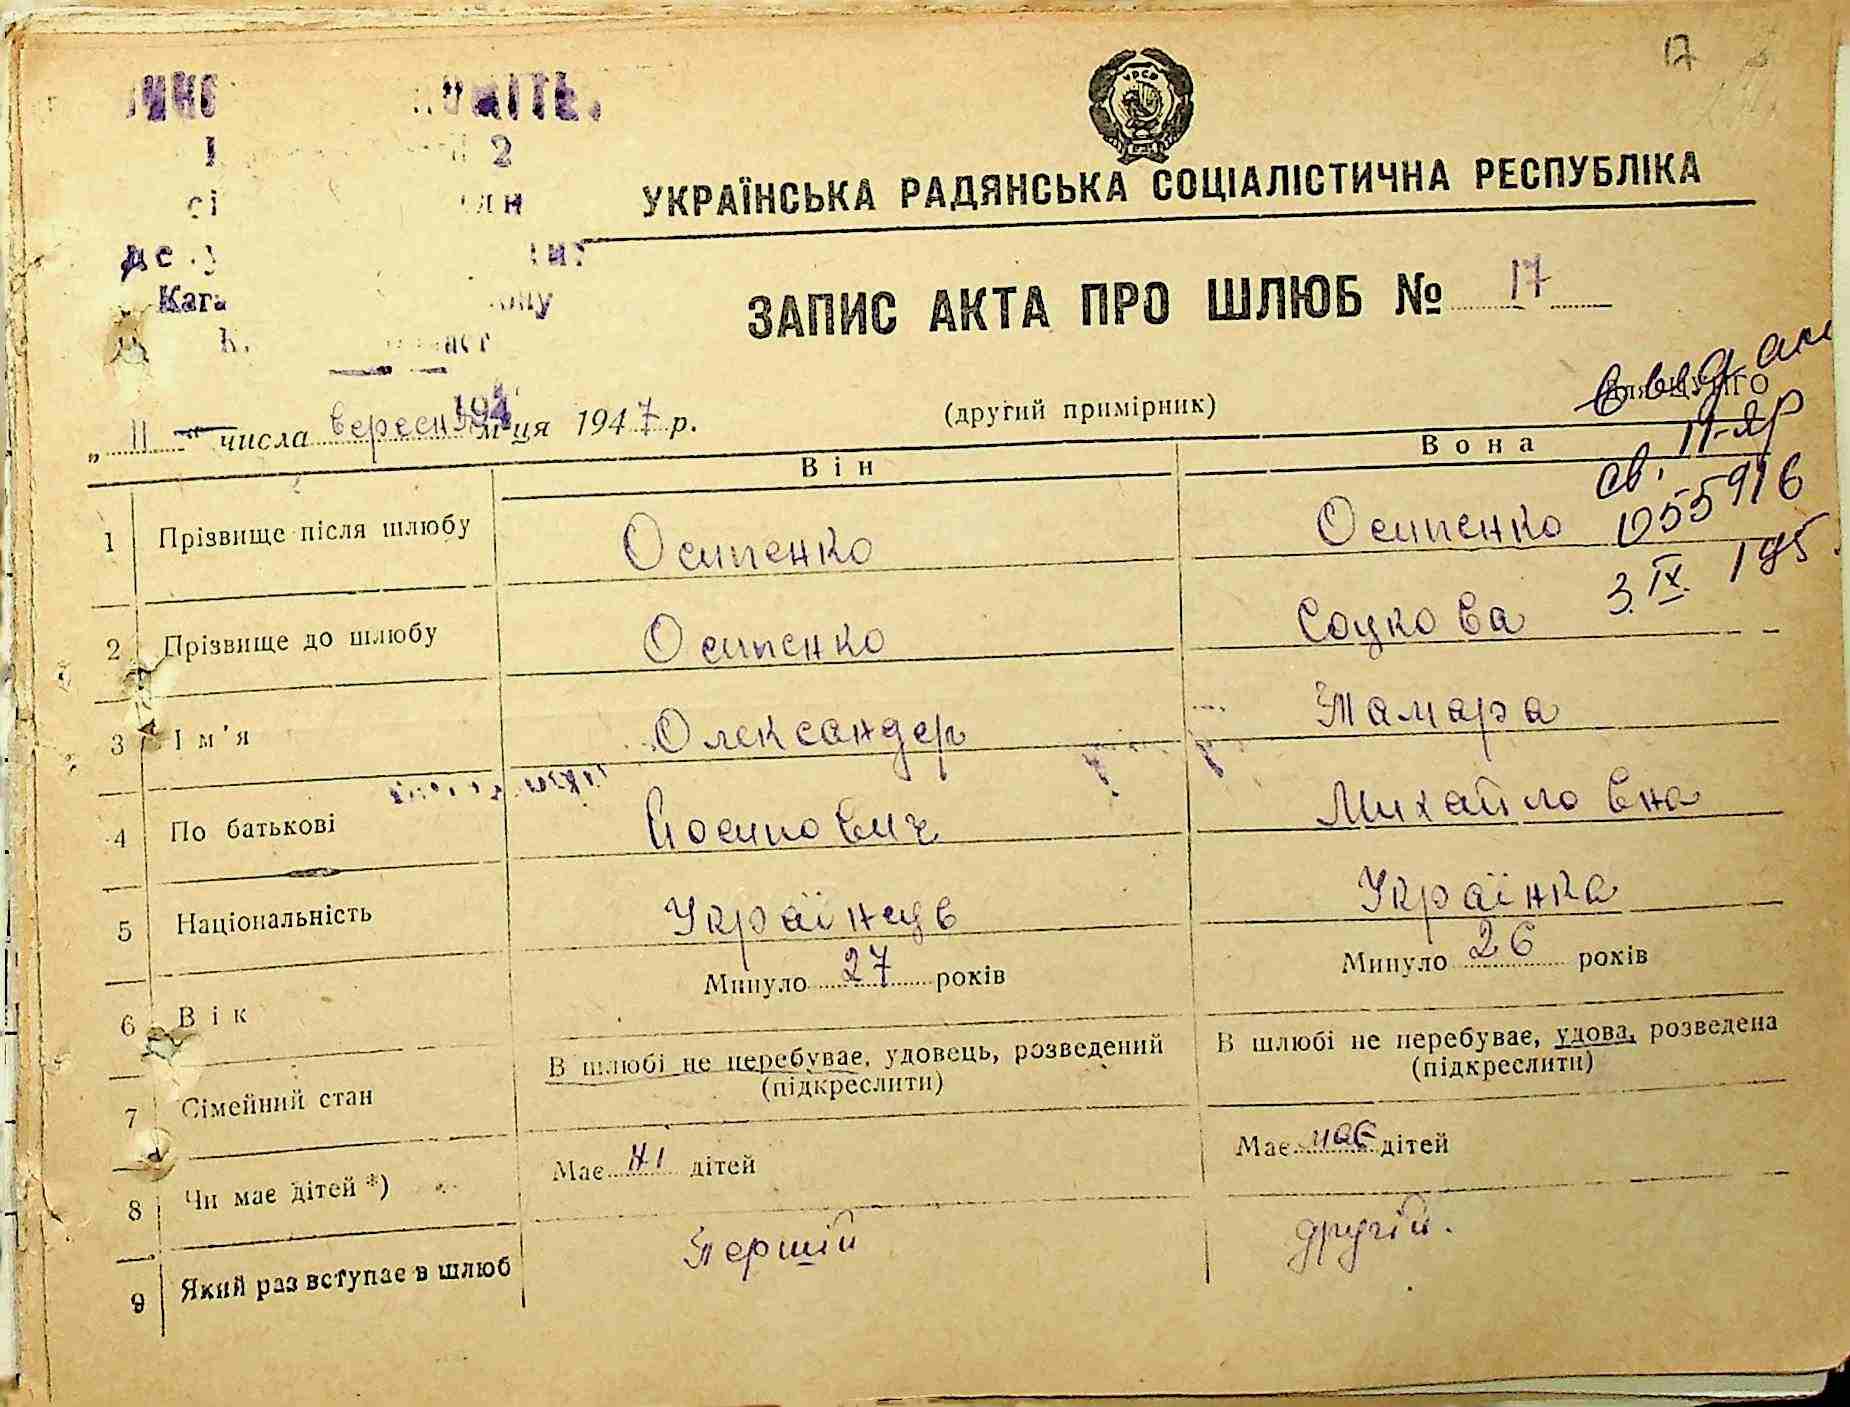 17
УРСР
УКРАЇНСЬКА РАДЯНСЬКА СОЦІАЛІСТИЧНА РЕСПУБЛІКА
ЗАПИС АКТА ПРО ШЛЮБ № 17
„ 11 “ числа вересня м-ця 1947 р.
(другий примірник)
св. 11-ЯР
1055916
3. IX. 195
Він
Вона
1 Прізвище після шлюбу Осипенко Осипенко
2 Прізвище до шлюбу Осипенко Соцкова
3 Ім'я Олександер Тамара
4 По батькові Йосипович Михайловна
5 Національність Українець Українка
6 Вік Минуло 27 років Минуло 26 років
7 Сімейний стан В шлюбі не перебуває, удовець, розведений (підкреслити) В шлюбі не перебуває, удова, розведена (підкреслити)
8 Чи має дітей *) Має ні дітей Має має дітей
9 Який раз вступає в шлюб Перший другий.